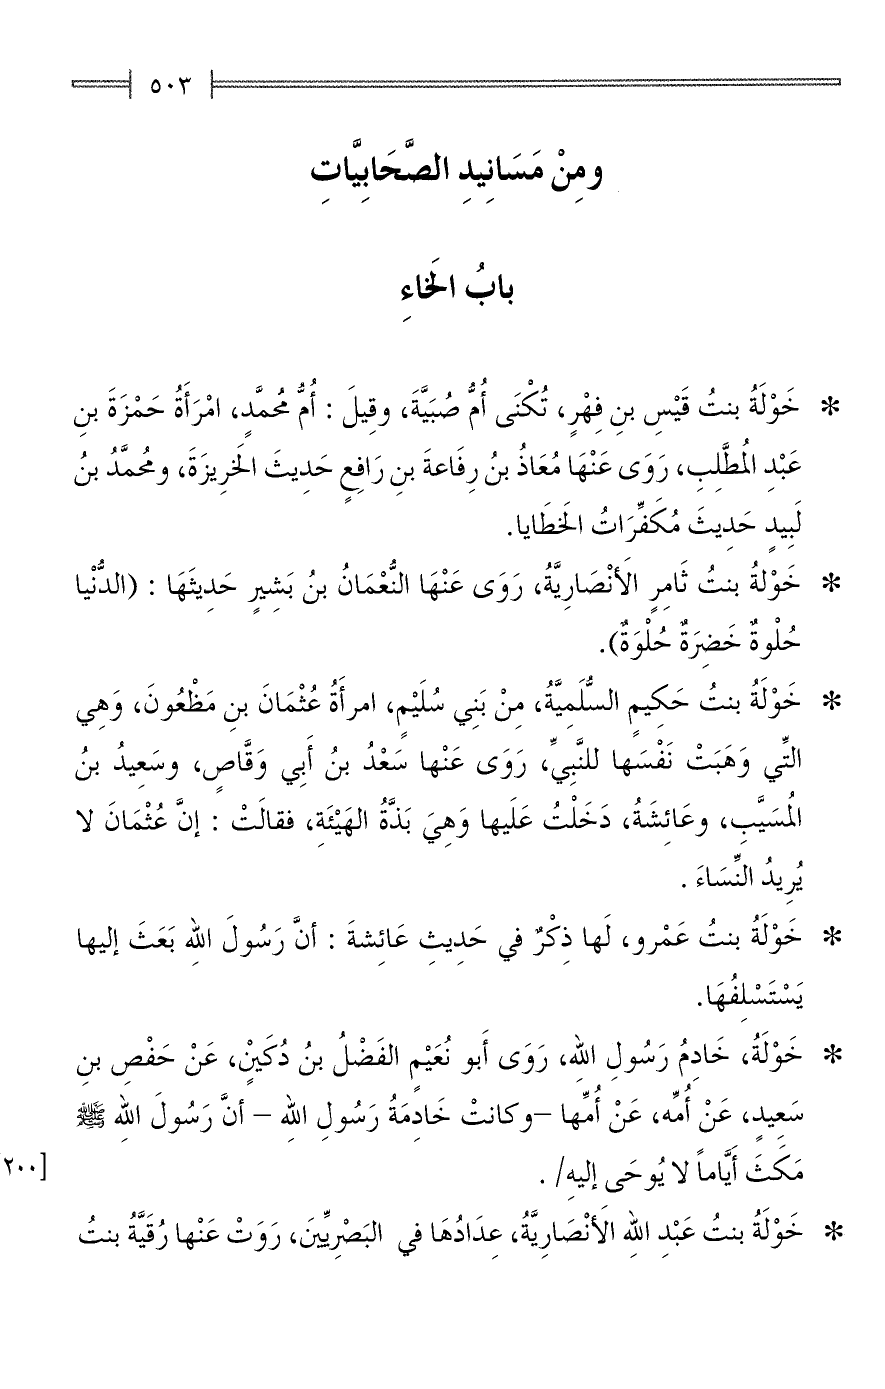 ٥٠٣
ومِنْ مَسَانِيدِ الصَّحَابِيَّاتِ
بابُ الَخاءِ
* خَوْلَةُ بنتُ قَيْسِ بنِ فِهْرٍ، تُكْنَى أُمُّ صُبَيَّةَ، وقِيلَ : أُمُّ مُحمَّدٍ، امْرَأَةُ حَمْزَةَ بنِ
عَبْدِ الُمطَّلِبِ، رَوَى عَنْهَا مُعَاذُ بنُ رِفَاعةَ بنِ رَافِعٍ حَدِيثَ الَخرِيزَةَ، ومُحمَّدُ بنُ
لَبِيدٍ حَدِيثَ مُكَفِّرَاتُ الَخطَايا.
* خَوْلةُ بنتُ ثَامرٍ الَأنْصَارِيَّةُ، رَوَى عَنْهَا النُّعْمَانُ بنُ بَشِيرٍ حَدِيثَهَا : (الدُّنْيا
حُلْوةٌ خَضرَةٌ حُلْوَةٌ).
* خَوْلَةُ بنتُ حَكِيمٍ السُّلَمِيَّةُ، مِنْ بَنِي سُلَيْمٍ، امرأَةُ عُثْمَانَ بنِ مَظْعُونَ، وَهِي
التِّي وَهَبَتْ نَفْسَها للنَّبيِّ، رَوَى عَنْها سَعْدُ بنُ أَبي وَقَّاصٍ، وسَعِيدُ بنُ
الُمسَيَّبِ، وعَائِشَةُ، دَخَلْتُ عَلَيها وَهِيَ بَذَّةُ الهَيْئَةِ، فقالَتْ : إنَّ عُثْمَانَ لا
يُرِيدُ النِّسَاءَ .
* خَوْلَةُ بنتُ عَمْرو، لَها ذِكْرٌ في حَدِيثِ عَائِشةَ : أنَّ رَسُولَ اللهِ بَعَثَ إليها
يَسْتَسْلِفُهَا.
* خَوْلَةُ، خَادِمُ رَسُولِ اللهِ، رَوَى أَبو نُعَيْمٍ الفَضْلُ بنُ دُكَيْنْ، عَنْ حَفْصِ بنِ
سَعِيدٍ، عَنْ أُمِّه، عَنْ أُمِّها –وكانتْ خَادِمَةُ رَسُولِ اللهِ – أنَّ رَسُولَ اللهِ ﷺ
مَكَثَ أيَّاماً لا يُوحَى إليهِ/ .
[٢٠٠
* خَوْلَةُ بنتُ عَبْدِ اللهِ الَأنْصَارِيَّةُ، عِدَادُهَا في البَصْرِيِّينَ، رَوَتْ عَنْها رُقَيَّةُ بنتُ